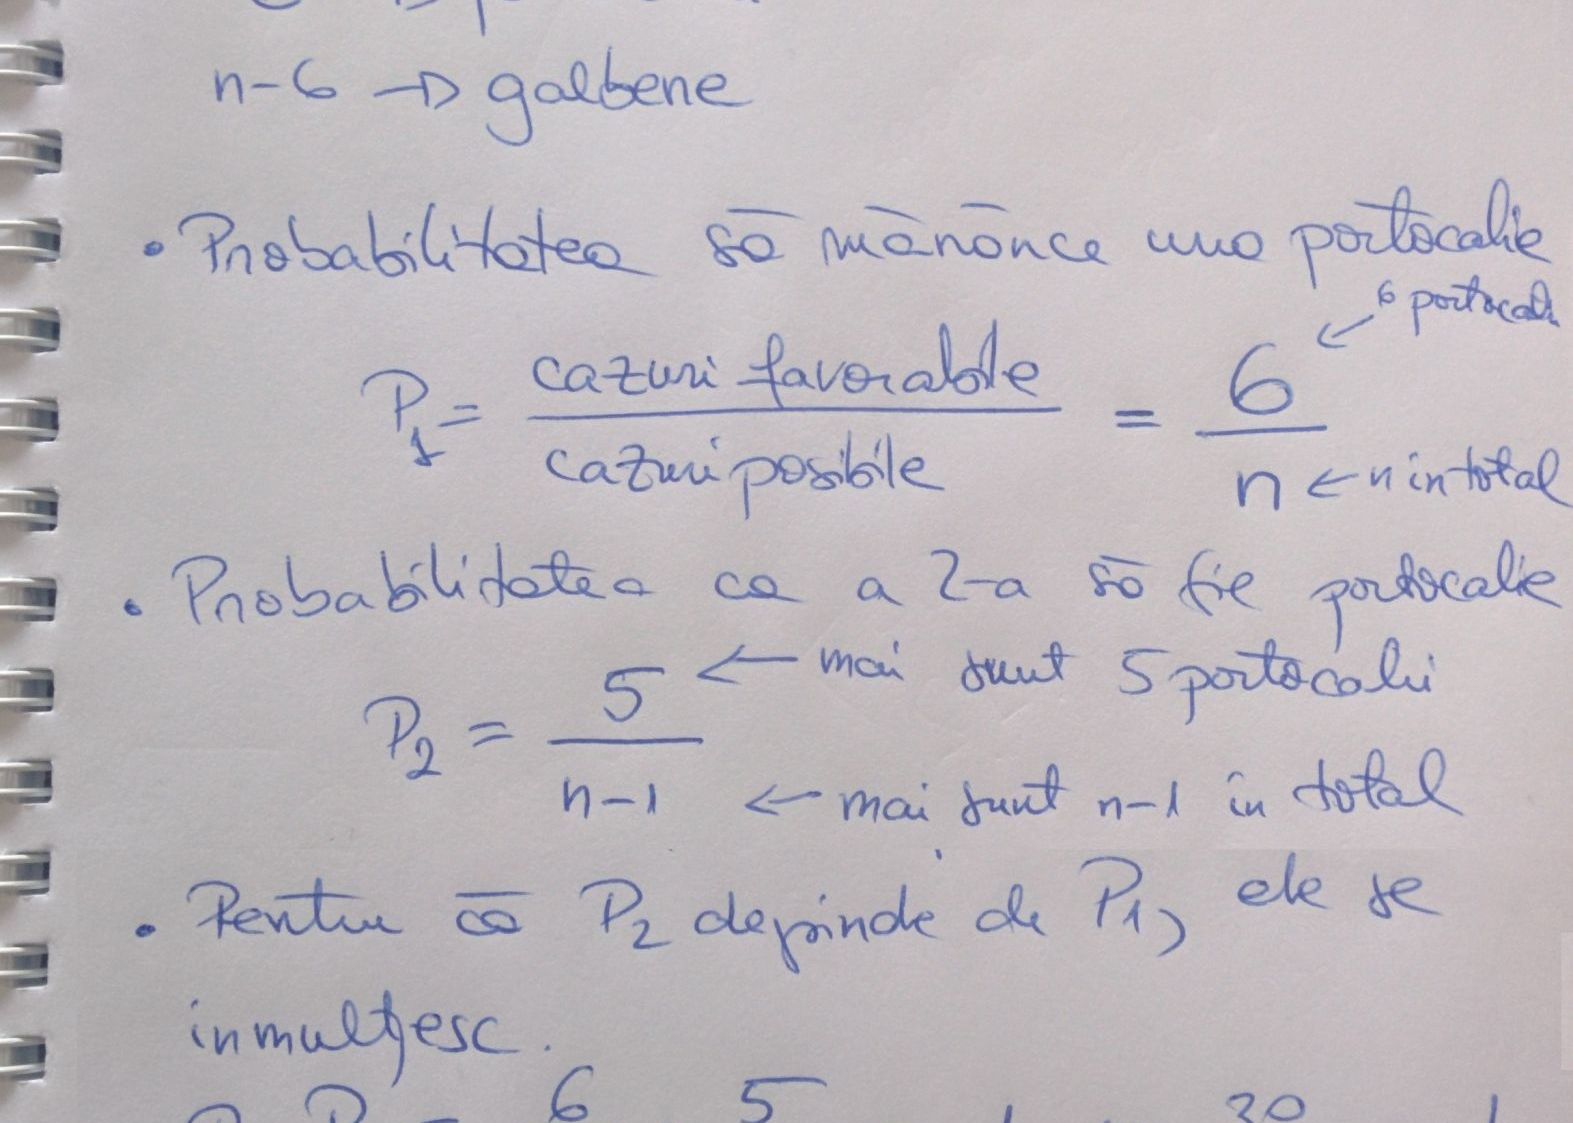 n-6 → galbene
• Probabilitatea să mănânce una portocalie
6 portocali
P1 = cazuri favorabile / cazuri posibile = 6 / n ← n in total
• Probabilitatea ca a 2-a să fie portocalie
P2 = 5 / n-1
← mai sunt 5 portocalii
← mai sunt n-1 în total
• Pentru că P2 depinde de P1, ele se
inmulțesc.
6 5 30